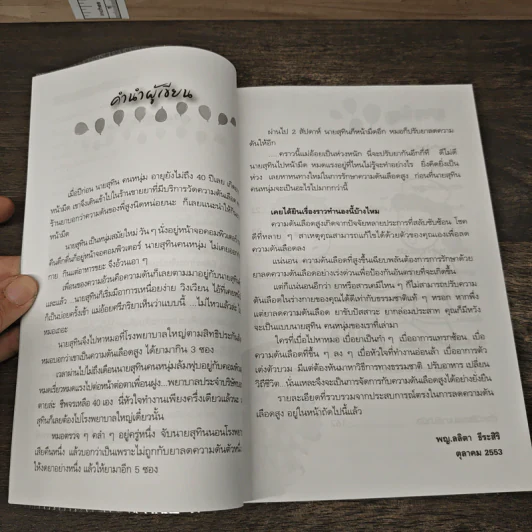 คำนำผู้เขียน
เมื่อปีก่อน นายสุทิน คนหนุ่ม อายุยังไม่ถึง 40 ปีเลย เกิด
หน้ามืด เขาจึงเดินเข้าไปในร้านขายยาที่มีบริการวัดความดันเลือด
ร้านยาบอกว่าความดันของพี่สูงนิดหน่อยนะ ก็เลยแนะนำให้
หมอ
นายสุทิน เป็นหนุ่มสมัยใหม่ วัน ๆ นั่งอยู่หน้าจอคอมพิวเตอร์
ดึกดื่นก็อยู่หน้าจอคอมพิวเตอร์ นายสุทินคนหนุ่ม ไม่เคยออก
กาย กินแต่อาหารขยะ จึงอ้วนเอา ๆ
เพื่อนของความอ้วนคือความดันก็เลยตามมาอยู่กับนายสุทิน
และแล้ว ...นายสุทินก็เริ่มมีอาการเหนื่อยง่าย วิงเวียน
ก็เป็นบ่อยครั้งเข้า หมออีครีกรียาเห็นว่าแบบนี้... ไม่ไหวแล้วล่ะ
หมอเถอะ
นายสุทินจึงไปหาหมอที่โรงพยาบาลใหญ่ตามสิทธิประกัน
หมอบอกว่าเขาเป็นความดันเลือดสูง ได้ยามากิน 3 ซอง
เวลาผ่านไม่ไม่ถึงเดือนนายสุทินคนหนุ่มล้มฟุบอยู่กับคอม
หมดเรี่ยวหมดแรงไปต่อหน้าต่อตาเพื่อนฝูง... พยาบาลประจำบริษัท
ตายล่ะ ชีพจรเหลือ 40 เอง นี่หัวใจทำงานเพียงครึ่งเดียวแล้วนะ
สุทินก็เลยต้องไปโรงพยาบาลใหญ่เดี๋ยวนั้น
หมอตรวจ ๆ คลำ ๆ อยู่ครู่หนึ่ง จับนายสุทินนอนโรง
เสียคืนหนึ่ง แล้วบอกว่าเป็นเพราะไม่ถูกกับยาลดความดันตัวหนึ่ง
ให้งดยาอย่างหนึ่ง แล้วให้ยามาอีก 5 ซอง
ผ่านไป 2 สัปดาห์ นายสุทินก็หน้ามืดอีก หมอก็ปรับยาลดความ
ดันให้อีก
... คราวนี้แม่อ้อยเป็นห่วงหนัก นี่จะปรับยากันอีกกี่ที ดีไม่ดี
นายสุทินไปหน้ามืด หมดแรงอยู่ที่ไหนไม่รู้จะทำอย่างไร ยิ่งคิดยิ่งเป็น
ห่วง เลยหาหนทางใหม่ในการรักษาความดันเลือดสูง ก่อนที่นายสุทิน
คนหนุ่มจะเป็นอะไรไปมากกว่านี้
เคยได้ยินเรื่องราวทำนองนี้บ้างไหม
ความดันเลือดสูงเกิดจากปัจจัยหลายประการที่สลับซับซ้อน โชค
ดีที่หลาย ๆ สาเหตุคุณสามารถแก้ไขได้ด้วยตัวของคุณเองเพื่อลด
ความดันเลือดลง
แน่นอน ความดันเลือดที่สูงขึ้นเฉียบพลันต้องการการรักษาด้วย
ยาลดความดันเลือดอย่างเร่งด่วนเพื่อป้องกันอันตรายที่จะเกิดขึ้น
แต่ก็แน่นอนอีกว่า ยาหรือสารเคมีไหน ๆ ก็ไม่สามารถปรับความ
ดันเลือดในร่างกายของคุณได้ดีเท่ากับธรรมชาติแท้ ๆ หรอก หากพึ่ง
แต่ยาลดความดันเลือด ยาขับปัสสาวะ ยากล่อมประสาท คุณก็มีหวัง
จะเป็นแบบนายสุทิน คนหนุ่มของเราที่เล่ามา
ใครที่เบื่อไปหาหมอ เบื่อยาเป็นกำ ๆ เบื่ออาการแทรกซ้อน เบื่อ
ความดันเลือดที่ขึ้น ๆ ลง ๆ เบื่อหัวใจที่ทำงานอ่อนล้า เบื่ออาการตัว
เต่งตัวบวม มีแต่ต้องหันมาหาวิธีการทางธรรมชาติ ปรับอาหาร เปลี่ยน
วิถีชีวิต นั่นแหละจึงจะเป็นการจัดการกับความดันเลือดสูงได้อย่างยั่งยืน
รายละเอียดที่รวบรวมจากประสบการณ์ตรงในการลดความดัน
เลือดสูง อยู่ในหน้าถัดไปนี้แล้ว
พญ.ลลิตา ธีระสิริ
ตุลาคม 2553